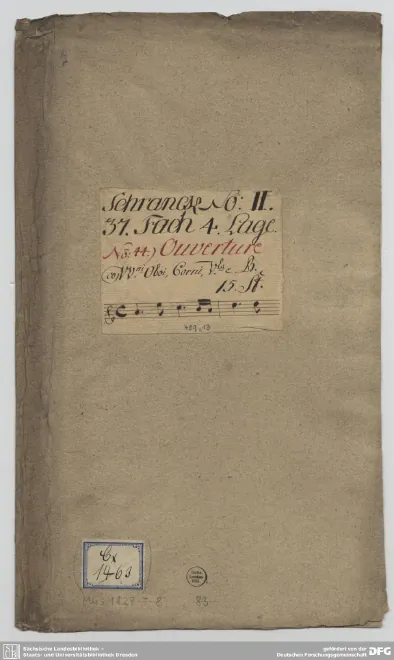 Schranck No: II.
37. Fach 4. Lage.
No: 44.) Ouverture
co VV.ni Oboi, Corni, V.la e B.
15. St.
Cx
1463
83
Sächsische Landesbibliothek –
Staats- und Universitätsbibliothek Dresden
gefördert von der
Deutschen Forschungsgemeinschaft
DFG